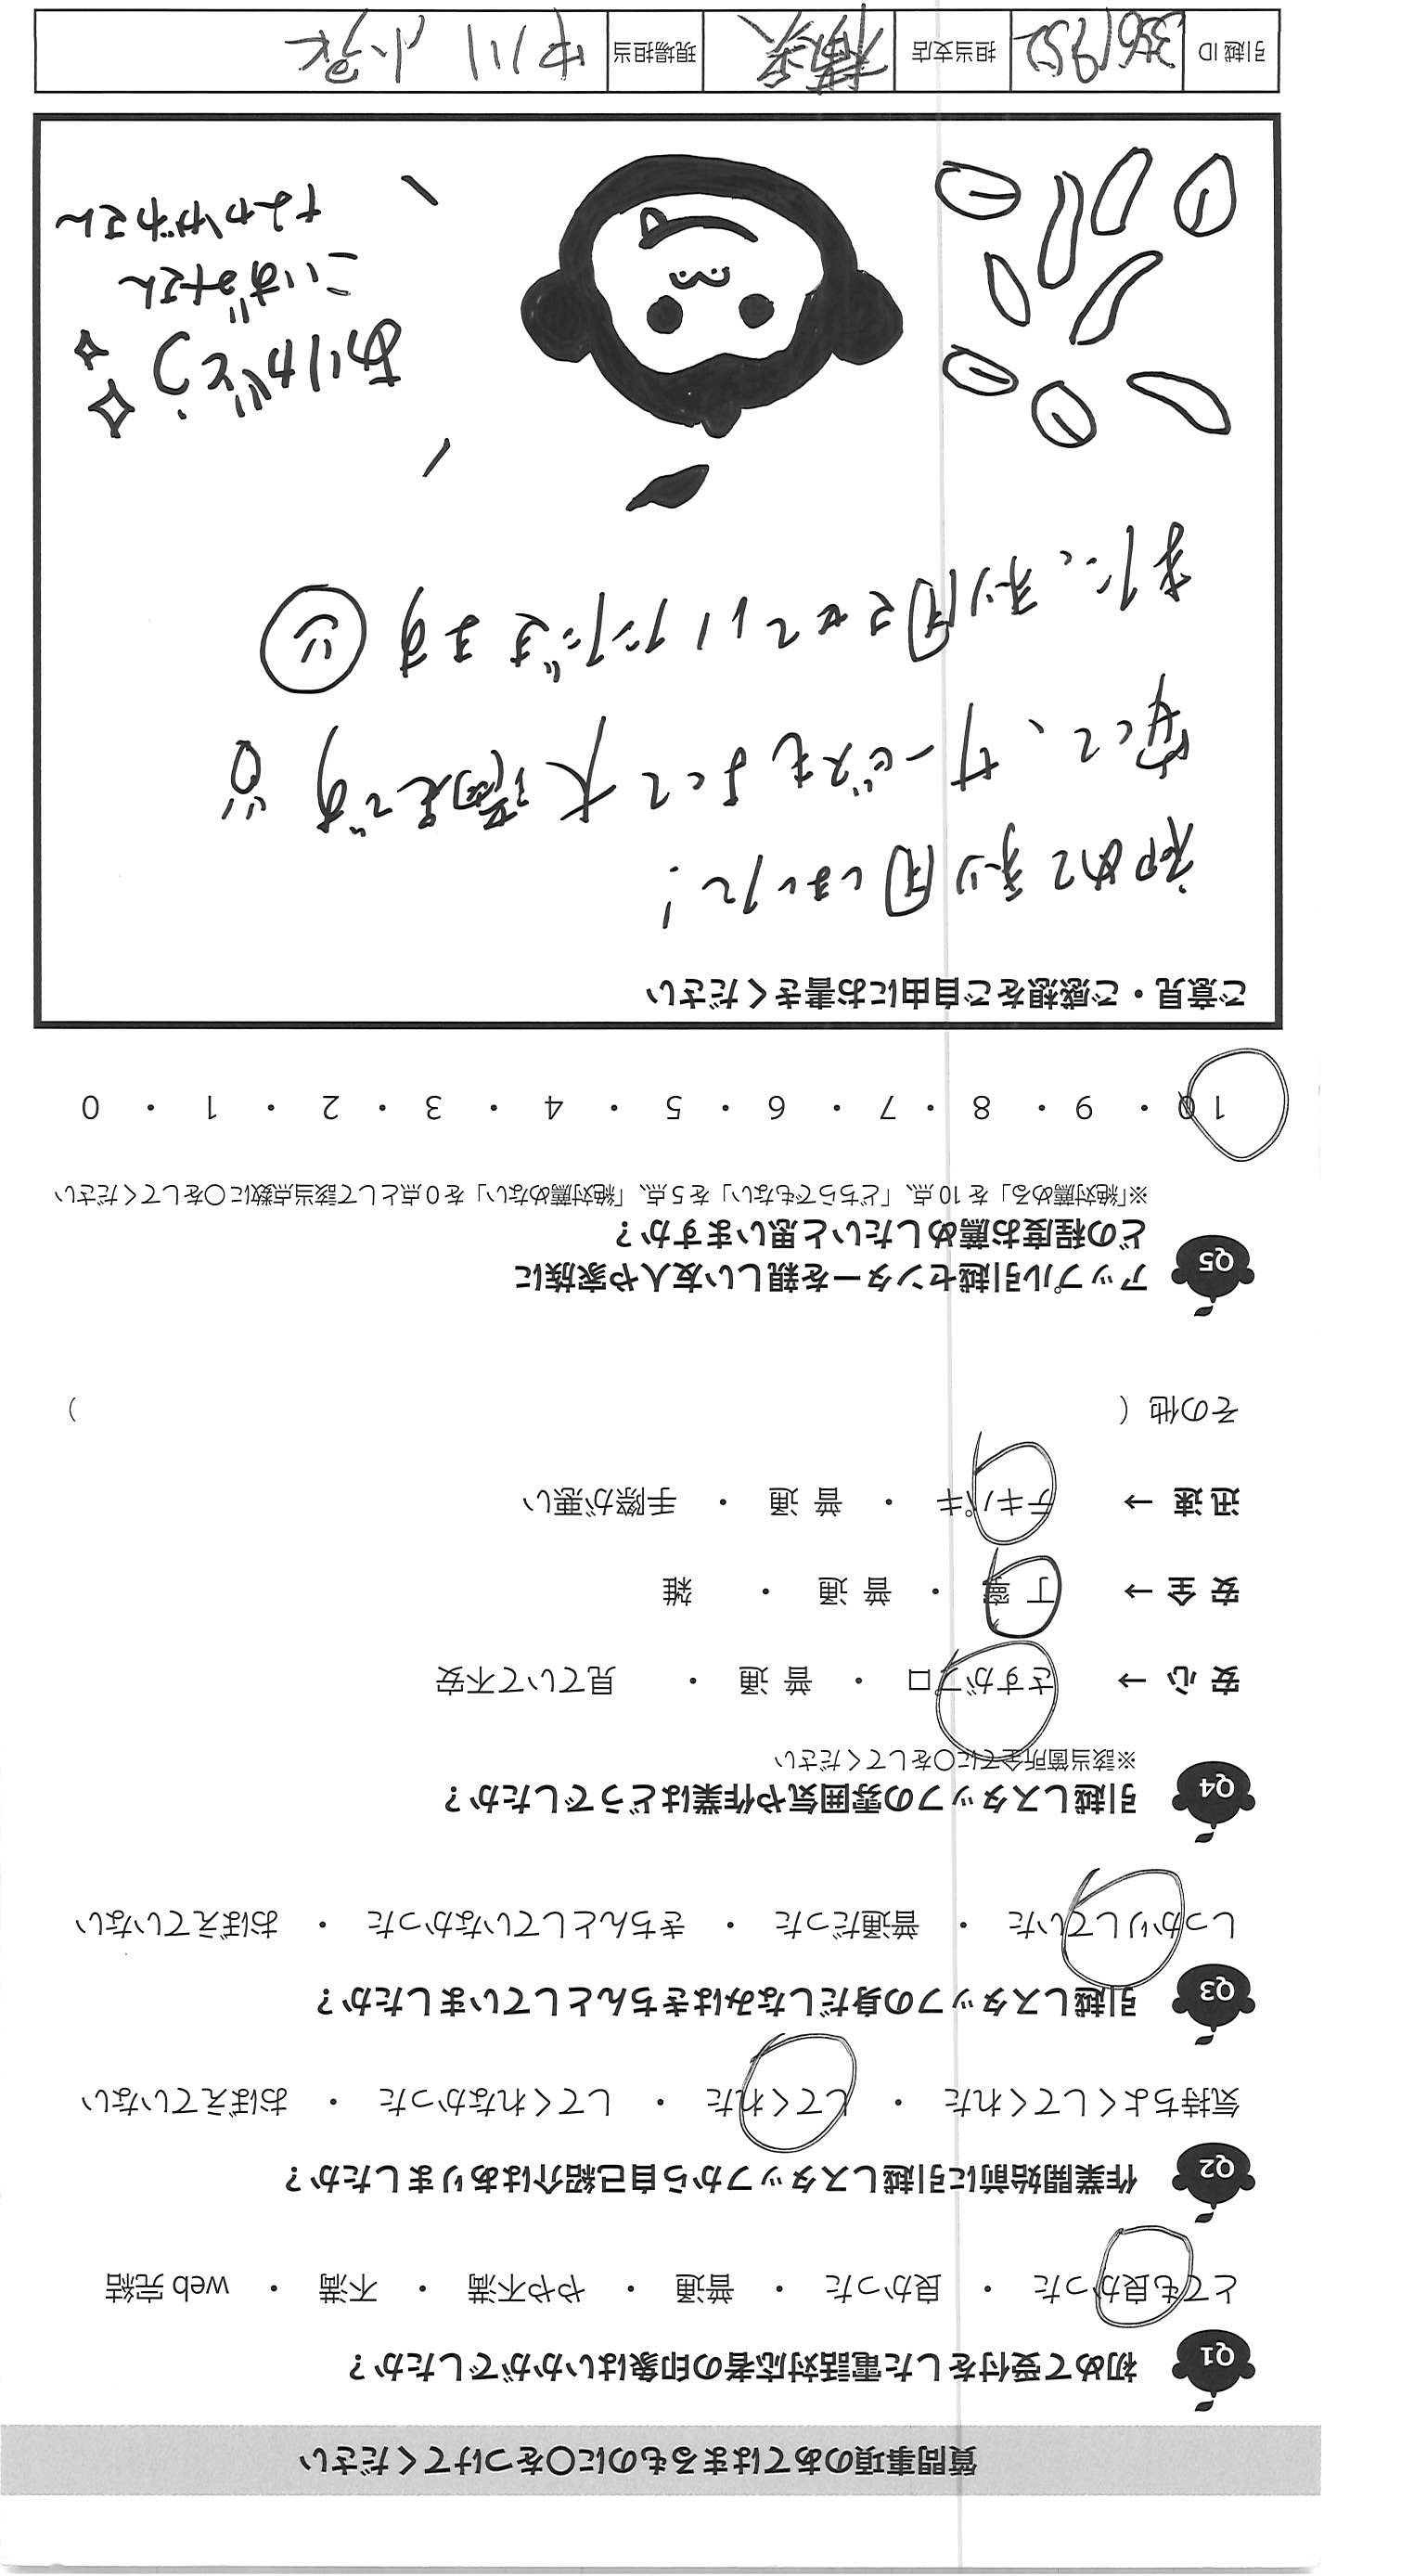 質問事項のあてはまるものに○をつけてください
Q1 初めて受付をした電話対応者の印象はいかがでしたか？
とても良かった ・ 良かった ・ 普通 ・ やや不満 ・ 不満 ・ web 完結
Q2 作業開始前に引越しスタッフから自己紹介はありましたか？
気持ちよくしてくれた ・ してくれた ・ してくれなかった ・ おぼえていない
Q3 引越しスタッフの身だしなみはきちんとしていましたか？
しっかりしていた ・ 普通だった ・ きちんとしていなかった ・ おぼえていない
Q4 引越しスタッフの雰囲気や作業はどうでしたか？
※該当箇所全てに○をしてください
安心 → さすがプロ ・ 普通 ・ 見ていて不安
安全 → 丁寧 ・ 普通 ・ 雑
迅速 → テキパキ ・ 普通 ・ 手際が悪い
その他（ ）
Q5 アップル引越センターを親しい友人や家族に
どの程度お薦めしたいと思いますか？
※「絶対薦める」を10点、「どちらでもない」を5点、「絶対薦めない」を0点として該当点数に○をしてください
10 ・ 9 ・ 8 ・ 7 ・ 6 ・ 5 ・ 4 ・ 3 ・ 2 ・ 1 ・ 0
ご意見・ご感想をご自由にお書きください
初めて利用しまして！
安くて、サービスもよくて大満足です
また、利用させていただきます
ありがとう
こいずみさん
なかがわさん
引越ID 担当支店 現場担当 中川 小泉